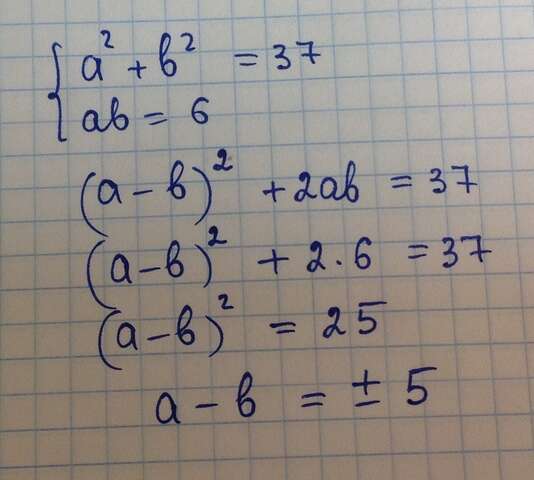 { a² + b² = 37
ab = 6
(a - b)² + 2ab = 37
(a - b)² + 2 · 6 = 37
(a - b)² = 25
a - b = ± 5